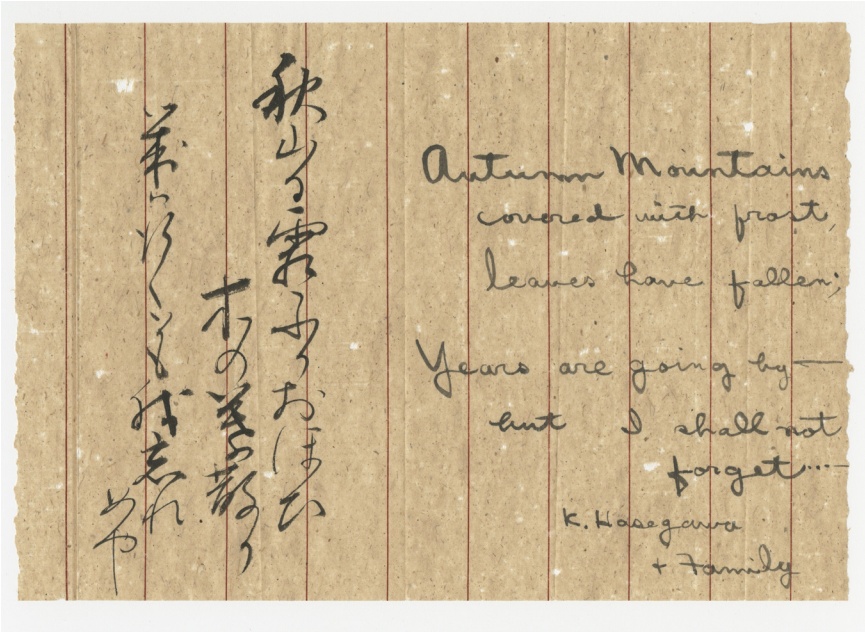 秋山に霜ふりおほひ
木の葉散り
歳ハ行くとも我忘れ
めや
Autumn Mountains
covered with frost,
leaves have fallen;
Years are going by—
but I shall not
forget...—
K. Hasegawa
+ Family